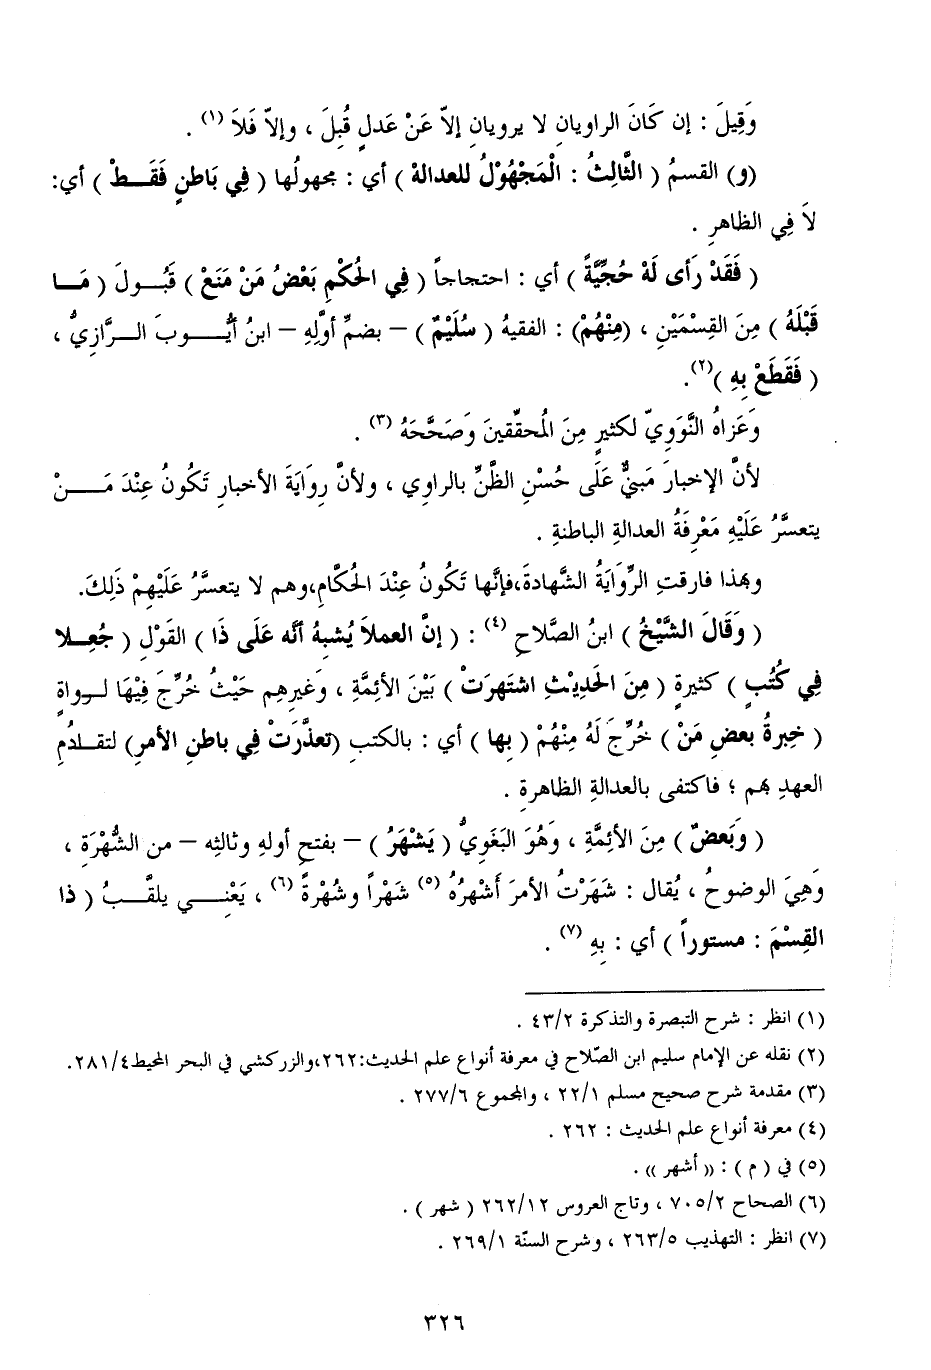 وَقِيلَ : إن كَانَ الراويانِ لا يرويانِ إلاّ عَنْ عَدلٍ قُبِلَ ، وإلاّ فَلاَ (١) .
(و) القسمُ ( الثَّالِثُ : الْمَجْهُوْلُ للعدالةْ ) أي : مجهولُها ( فِي بَاطنٍ فَقَـطْ ) أي:
لاَ فِي الظاهرِ .
( فَقَدْ رَأى لَهْ حُجِّيَّةً ) أي : احتجاجاً ( فِي الحُكْمِ بَعْضُ مَنْ مَنَعْ ) قَبُـولَ ( مَـا
قَبْلَهُ ) مِنَ القِسْمَيْنِ ، (مِنْهُمْ) : الفقيهُ ( سُلَيْمٌ ) – بضمِّ أوَّلِهِ – ابنُ أيُّـوبَ الـرَّازِيُّ ،
( فَقَطَعْ بِهِ )(٢).
وَعَزاهُ النَّوَوِيّ لكثيرٍ مِنَ المُحقّقينَ وَصَحَّحَهُ (٣) .
لأنَّ الإخبارَ مَبنيٌّ عَلَى حُسْنِ الظَّنِّ بالراوِي ، ولأنَّ رِوَايَةَ الأخبارِ تَكُونُ عِنْدَ مَـنْ
يتعسَّرُ عَلَيْهِ مَعْرِفَةُ العدالةِ الباطنةِ .
وبهذا فارقتِ الرِّوَايَةُ الشَّهادةَ،فإنَّها تَكُونُ عِنْدَ الحُكّامِ،وهم لا يتعسَّرُ عَلَيْهِمْ ذَلِكَ.
( وَقَالَ الشَّيْخُ ) ابنُ الصَّلاحِ (٤) : ( إنَّ العملاَ يُشبهُ أنّه عَلَى ذَا ) القَوْلِ ( جُعِـلا
فِي كُتُبٍ ) كثيرةٍ ( مِنَ الحَدِيْثِ اشتَهرَتْ ) بَيْنَ الأئِمَّةِ ، وغَيرِهِم حَيْثُ خُرِّجَ فِيْهَا لـرواةٍ
( خِبرةُ بعضِ مَنْ ) خُرِّجَ لَهُ مِنْهُمْ ( بِها ) أي : بالكتبِ (تعذَّرَتْ فِي باطنِ الأمرِ) لتقـادُمِ
العهدِ بهم ؛ فاكتفى بالعدالةِ الظاهرةِ .
( وَبَعضٌ ) مِنَ الأئِمَّةِ ، وَهُوَ البَغَوِيُّ ( يَشْهَرُ ) – بفتحِ أولهِ وثالثِه – من الشُّهْرَةِ ،
وَهِيَ الوضوحُ ، يُقال : شَهَرْتُ الأمرَ أَشْهرُهُ (٥) شَهْراً وشُهْرةً (٦) ، يَعْنِـي يلقَّـبُ ( ذا
القِسْمَ : مستوراً ) أي : بِهِ (٧) .
(١) انظر : شرح التبصرة والتذكرة ٤٣/٢ .
(٢) نقله عن الإمام سليم ابن الصّلاح في معرفة أنواع علم الحديث:٢٦٢،والزركشي في البحر المحيط٢٨١/٤.
(٣) مقدمة شرح صحيح مسلم ٢٢/١ ، والمجموع ٢٧٧/٦ .
(٤) معرفة أنواع علم الحديث : ٢٦٢ .
(٥) في ( م ) : (( أشهر )) .
(٦) الصحاح ٧٠٥/٢ ، وتاج العروس ٢٦٢/١٢ ( شهر ) .
(٧) انظر : التهذيب ٢٦٣/٥ ، وشرح السنّة ٢٦٩/١ .
٣٢٦